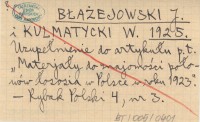 BŁAŻEJOWSKI J.
i KULMATYCKI W. 1925.
Uzupełnienie do artykułu p.t.
„Materjały do znajomości poło-
wów łososia w Polsce w roku 1923".
— Rybak Polski 4, nr 3.
BT/005/0601